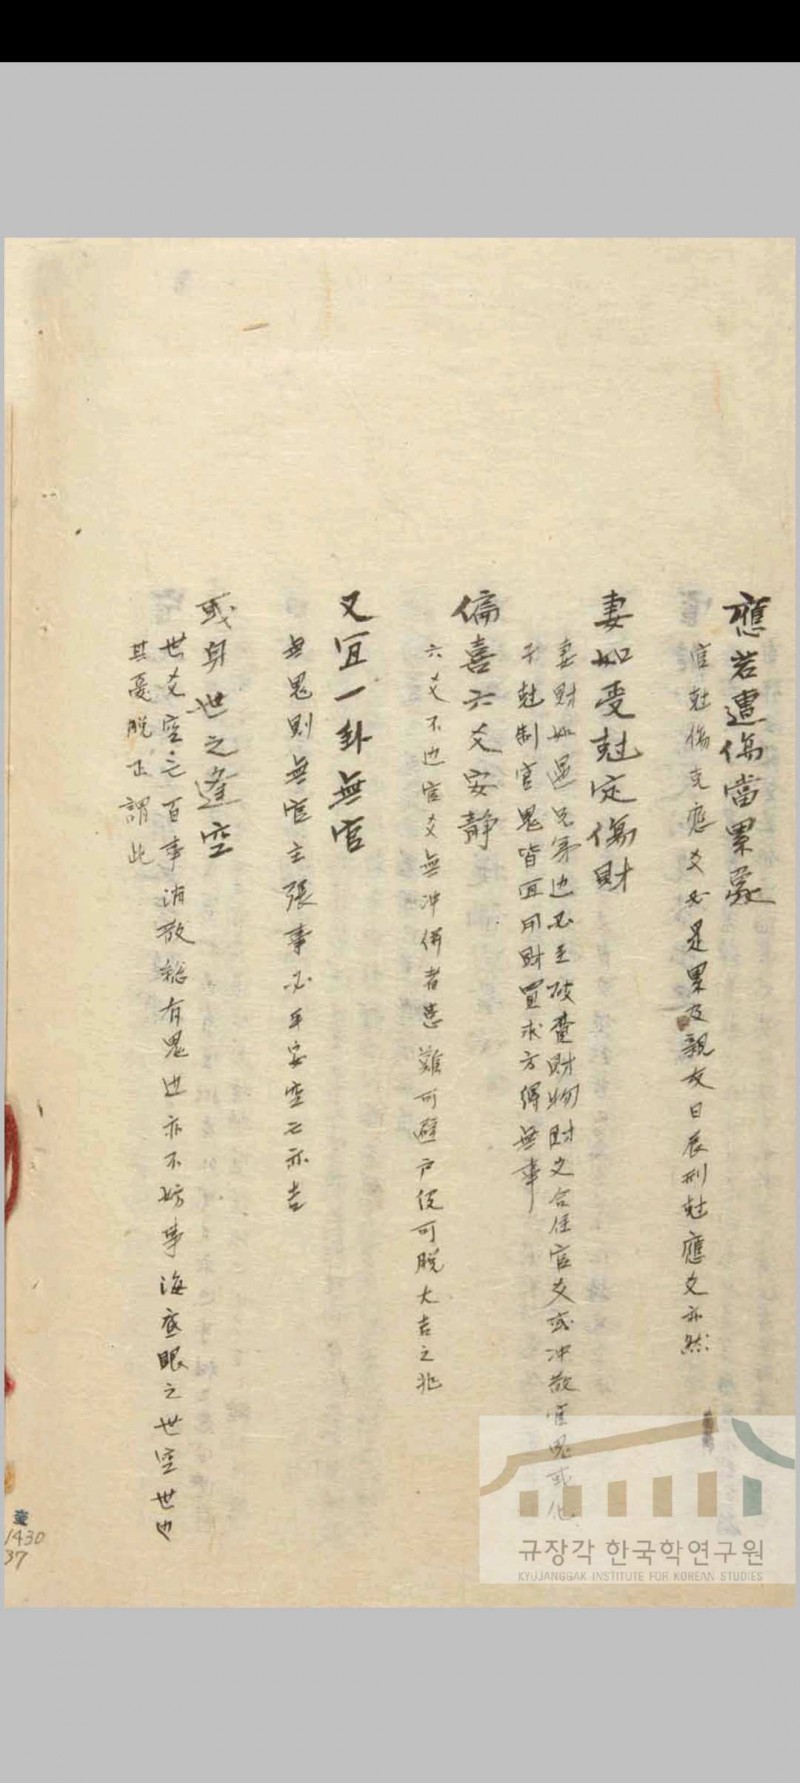 應若遭傷當累衆
官尅傷克應爻必是累及親友日辰刑尅應爻亦然
妻如受尅定傷財
妻財如遇兄弟迚必主破費財物財爻合住官爻或冲散官鬼或化
子尅制官鬼皆宜用財買求方得無事
偏喜六爻安静
六爻不迚官爻無冲倂者患難可避户役可脱大吉之兆
又宜一卦無官
無鬼則無官主張事必平安空亡亦吉
或身世之逢空
世爻空亡百事消散縂有鬼迚亦不妨事海底眼之世空世也
其憂脱正謂此
奎
1430
37
규장각 한국학연구원
KYUJANGGAK INSTITUTE FOR KOREAN STUDIES